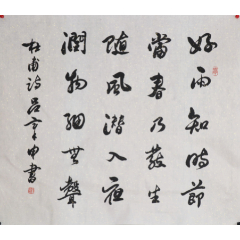 好雨知時節
當春乃發生
隨風潛入夜
潤物細無聲
杜甫詩呂重申書